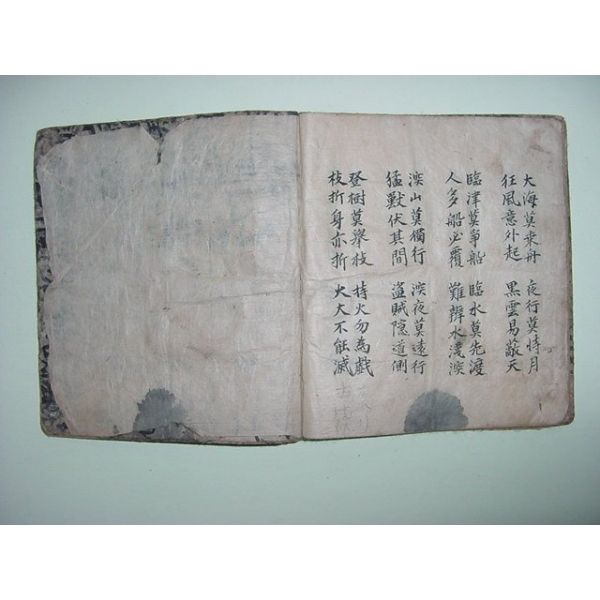 大海莫乗舟　夜行莫恃月
狂風意外起　黒雲易蔽天
臨津莫爭船　臨水莫先渡
人多船必覆　難辨水淺深
深山莫獨行　深夜莫遠行
猛獸伏其間　盗賊隠道側
登樹莫舉枝　持火勿為戯
枝折身亦折　火大不能滅